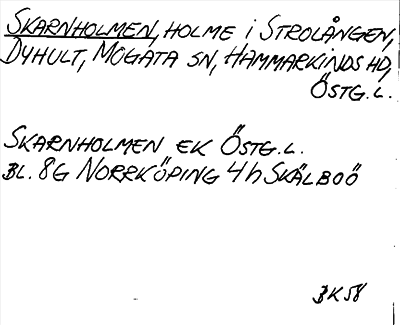 SKARNHOLMEN, HOLME i STROLÅNGEN,
DYHULT, MOGATA SN, HAMMARKINDS HD,
ÖSTG.L.
SKARNHOLMEN EK ÖSTG.L.
BL. 8G NORRKÖPING 4h SKÄLBOÖ
BK58